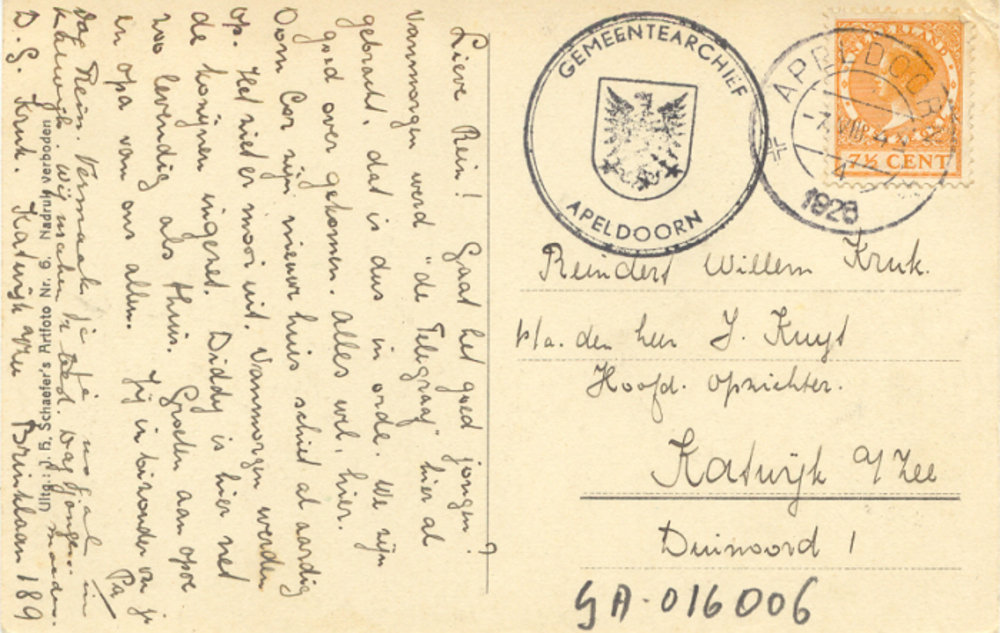 Lieve Rein! Gaat het goed jongen?
Vanmorgen werd "de Telegraaf" hier al
gebracht, dat is dus in orde. We zijn
goed over gekomen. Alles wel, hier.
Oom Cor zijn nieuwe huis schiet al aardig
op. Het ziet er mooi uit. Vanmorgen werden
de konijnen ingeënt. Diddy is hier net
zoo levendig als thuis. Groeten aan opoe
en opa van ons allen. Jij in bizonder van je
Pa
Dag Rein. Vermaak je je nogal in
Katwijk. Wij
D. G. Kruk. Katwijk a/zee Brinklaan 189
Uitg.: J. H. Schaefer's Artfoto Nr. 6. Nadruk verboden
GEMEENTEARCHIEF
APELDOORN
APELDOORN
-7 VIII 4
1928
NEDERLAND
7½ CENT
Reindert Willem Kruk.
p/a. den heer J. Kuyt
Hoofd. opzichter.
Katwijk a/Zee
Duinoord 1
GA-016006